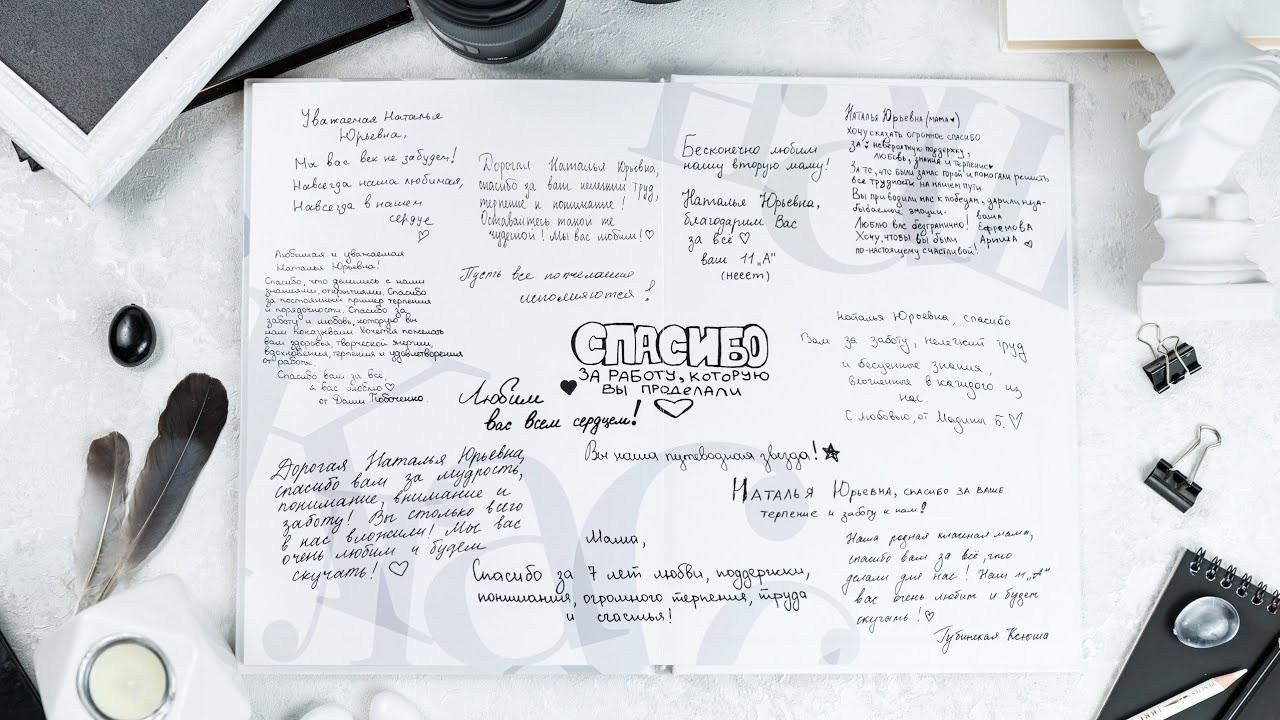 Уважаемая Наталья
Юрьевна,
Мы вас век не забудем!
Навсегда наша любимая,
Навсегда в нашем
сердце ♡
Дорогая Наталья Юрьевна,
спасибо за ваш нелегкий труд,
терпение и понимание!
Оставайтесь такой же
чудесной! Мы вас любим!♡
Любимая и уважаемая
Наталья Юрьевна!
Спасибо, что делились с нами
знаниями, открытиями. Спасибо
за постоянный пример терпения
и порядочности. Спасибо за
заботу и любовь, которую вы
нам
Хочется пожелать
вам здоровья, творческой энергии,
вдохновения, терпения и удовлетворения
от работы.
Спасибо вам за всё,
я вас люблю♡
от Даши
Пусть все пожелания
исполняются!
Любим ♥
вас всем сердцем!
Дорогая Наталья Юрьевна,
спасибо вам за мудрость,
понимание, внимание и
заботу! Вы столько всего
в нас вложили! Мы вас
очень любим и будем
скучать! ♡
Бесконечно любим
нашу вторую маму!
Наталья Юрьевна,
благодарим Вас
за всё ♡
ваш 11 „А"
(несет)
Наталья Юрьевна (мама♥)
Хочу сказать огромное спасибо
за невероятную поддержку,
любовь, знания и терпение♥
За то, что были за нас горой и помогали решить
все трудности на нашем пути.
Вы приводили нас к победам, дарили неза-
бываемые эмоции.
Люблю вас безгранично!
Хочу, чтобы вы были
по-настоящему счастливой!
ваша
Ефремова
Арина ♡
СПАСИБО
ЗА РАБОТУ, КОТОРУЮ
ВЫ ПРОДЕЛАЛИ
♡
Наталья Юрьевна, спасибо
Вам за заботу, нелегкий труд
и бесценное знания,
вложенное в каждого из
нас.
С любовью, от Мадины Б.♡
Вы наша путеводная звезда!★
Наталья Юрьевна, спасибо за ваше
терпение и заботу к нам!
Мама,
Спасибо за 7 лет любви, поддержки,
понимания, огромного терпения, труда
и счастья!
Наша родная классная мама,
спасибо вам за всё, что
делали для нас! Наш 11 „А"
вас очень любит и будет
скучать!♡
Губинская Ксюша